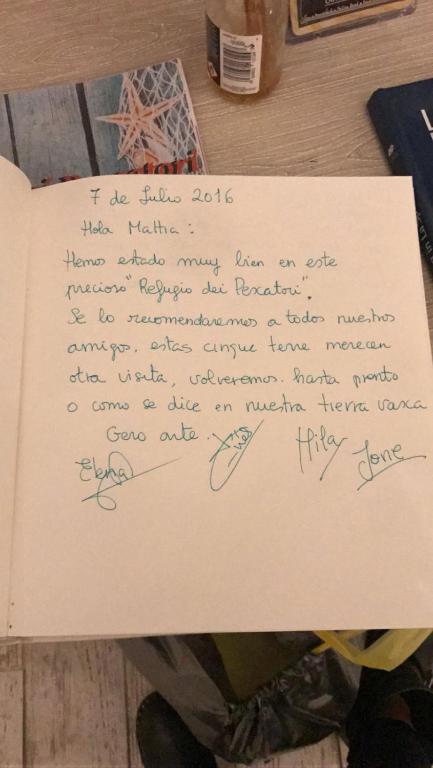 7 de Julio 2016
Hola Mattia:
Hemos estado muy bien en este
precioso "Refugio dei Pescatori".
Se lo recomendaremos a todos nuestros
amigos. estas cinque terre merecen
otra visita, volveremos. hasta pronto
o como se dice en nuestra tierra vasca
Gero arte.
Elena
Hila
Jone